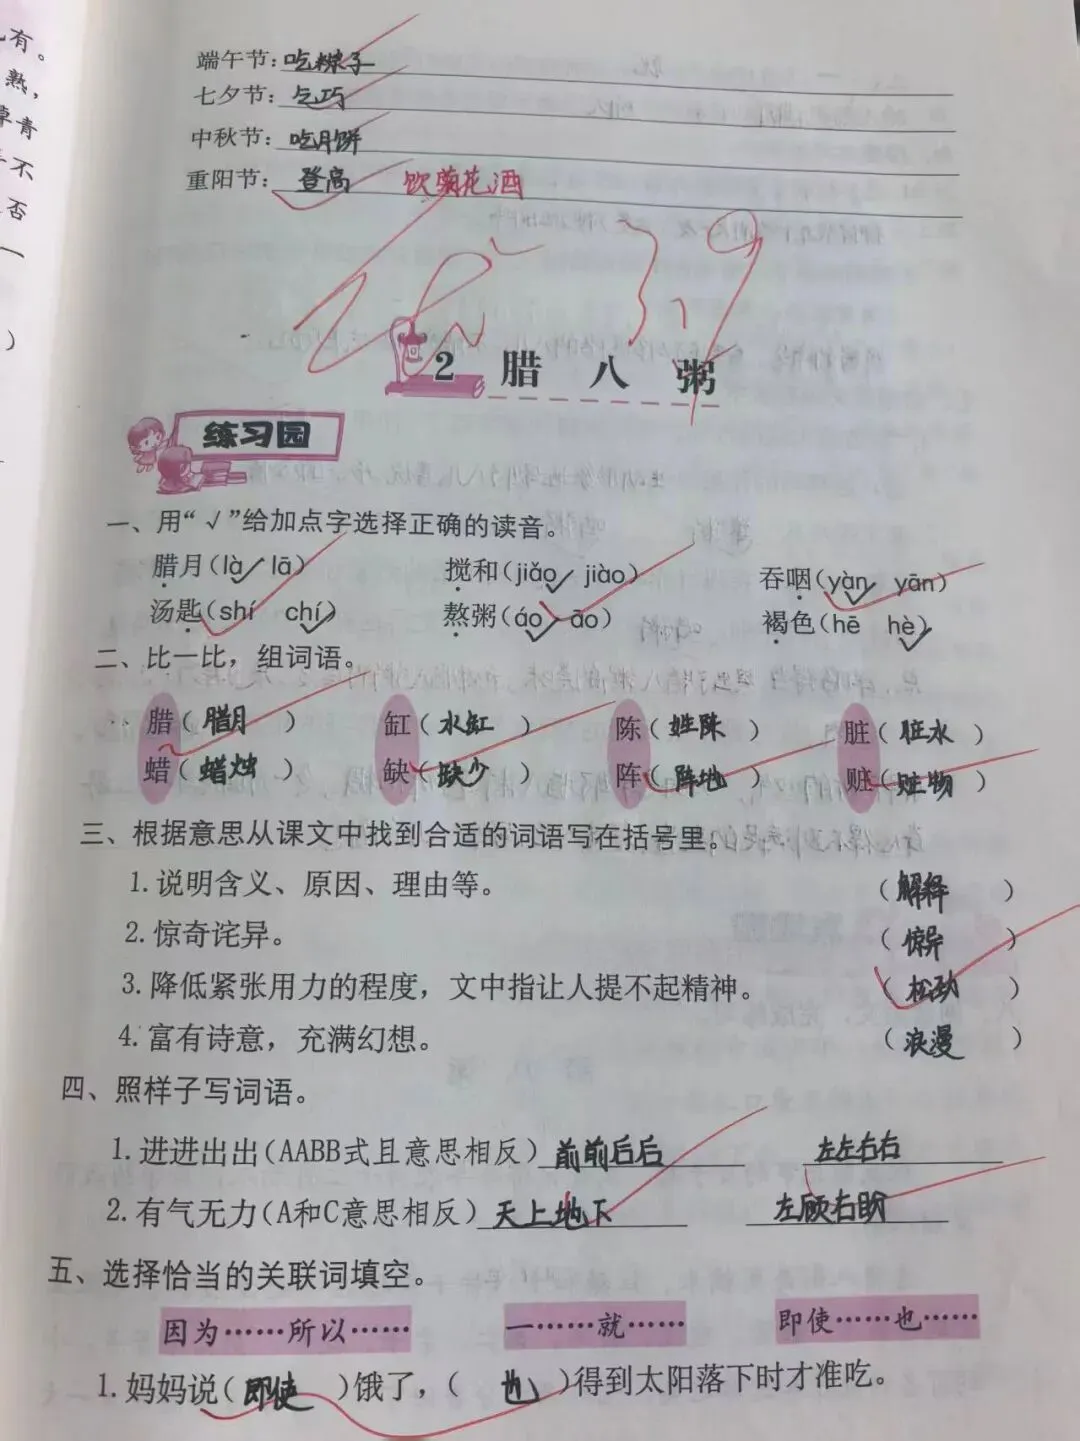 有。
熟，
青
不
否
一
）
端午节：吃粽子
七夕节：乞巧
中秋节：吃月饼
重阳节：登高 饮菊花酒
2 腊八粥
练习园
一、用“√”给加点字选择正确的读音。
腊月(là√ lā) 搅和(jiǎo√ jiào) 吞咽(yàn√ yān)
汤匙(shí chí√) 熬粥(áo√ āo) 褐色(hē hè√)
二、比一比，组词语。
腊（腊月） 缸（水缸） 陈（姓陈） 脏（脏水）
蜡（蜡烛） 缺（缺少） 阵（阵地） 赃（赃物）
三、根据意思从课文中找到合适的词语写在括号里。
1.说明含义、原因、理由等。（解释）
2.惊奇诧异。（惊异）
3.降低紧张用力的程度，文中指让人提不起精神。（松劲）
4.富有诗意，充满幻想。（浪漫）
四、照样子写词语。
1.进进出出(AABB式且意思相反) 前前后后 左左右右
2.有气无力(A和C意思相反) 天上地下 左顾右盼
五、选择恰当的关联词填空。
因为……所以…… 一……就…… 即使……也……
1.妈妈说（即使）饿了，（也）得到太阳落下时才准吃。